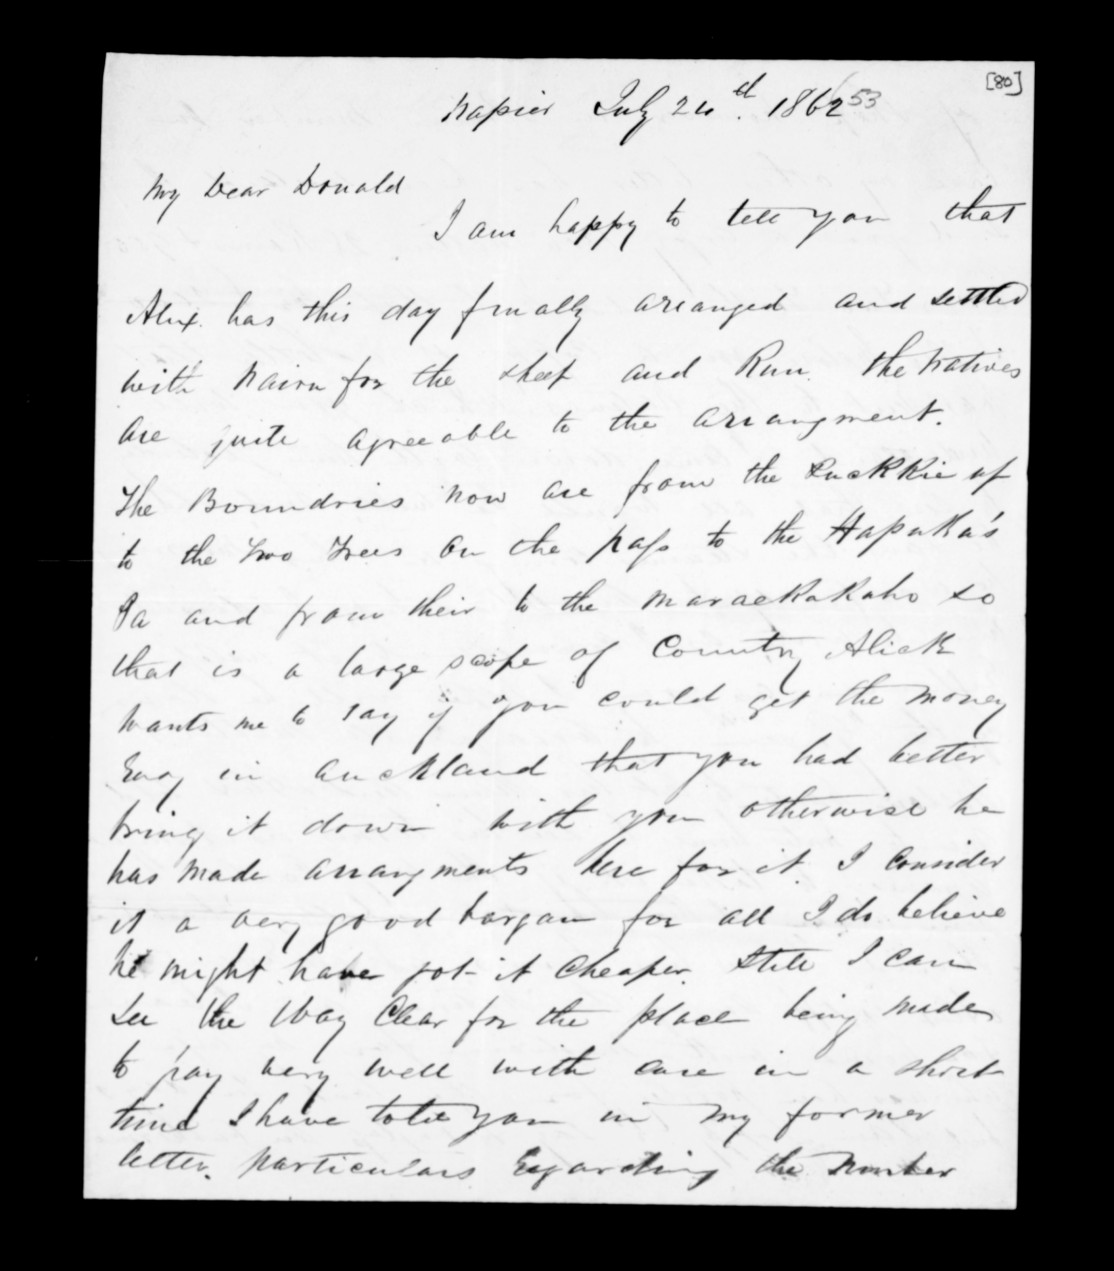 [80]
Napier July 24th. 1862 53
My Dear Donald
I am happy to tell you that
Alex. has this day finally arranged and settled
with Nairn for the sheep and Run. the Natives
are quite agreeable to the arrangment.
The Boundries now are from the up
to the Two Trees on the pass to the Hapuka's
Pa and from their to the Maraekakaho so
that is a large scope of Country Alick
wants me to say if you could get the money
Easy in Auckland that you had better
bring it down with you otherwise he
has made arrangments here for it I consider
it a very good bargan for all I do believe
he might have got it cheaper. Still I can
see the Way Clear for the place being made
to pay very well with care in a short
time I have told you in my former
letter. particulars Regarding the Number